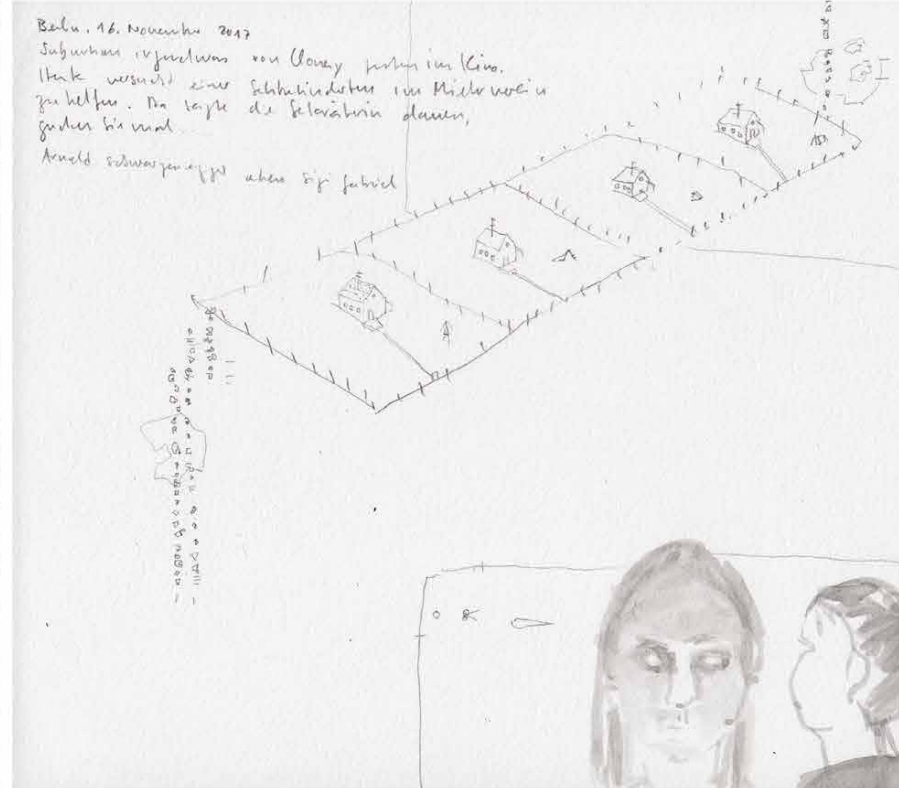 Berlin, 16. November 2017
Suburbicon irgendwas von Clooney gestern im Kino.
Heute versucht einer Sehbehinderten im Mieterverein
zu helfen. Da sagte die Sekretärin dauernd,
gucken Sie mal
Arnold Schwarzenegger Sigi Gabriel